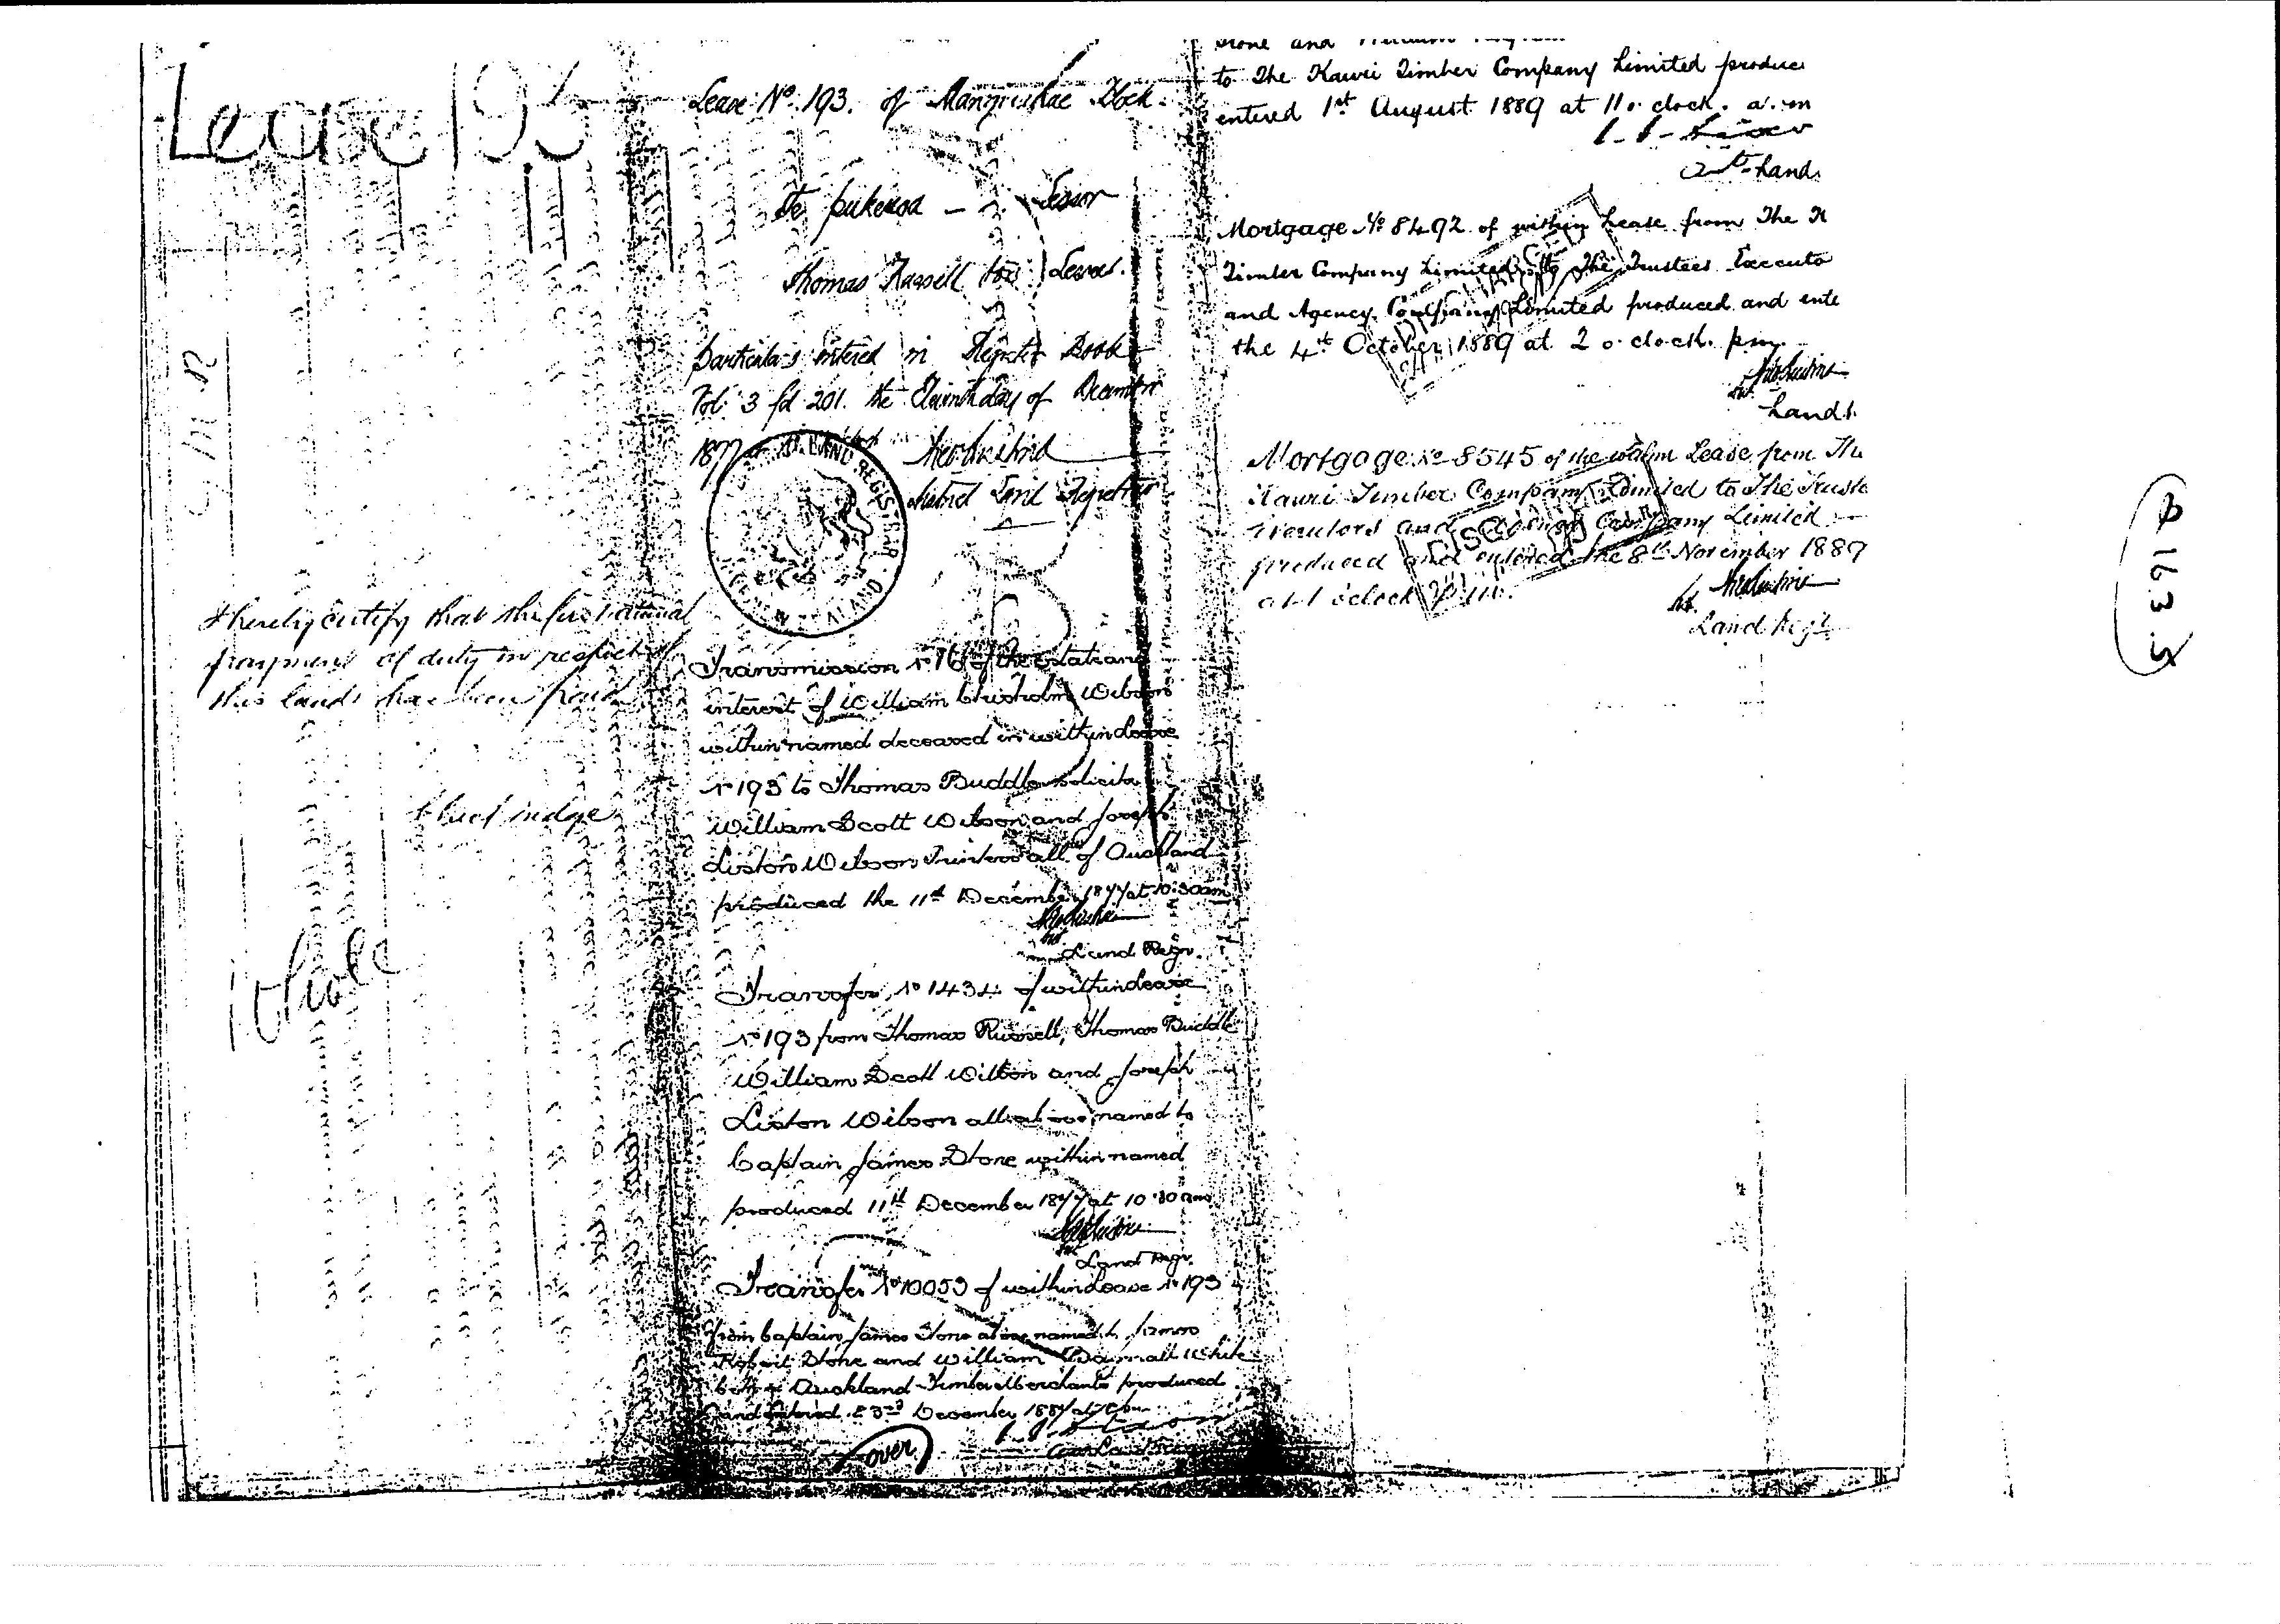 Lease 193
I hereby certify that the
payment of duty in respect of
this land has been paid
Chief Judge
whole
Lease No. 193. of Block
Te pukeroa - Lessor
Thomas Russell & ors Lessees.
particulars entered in Register Book
Vol. 3 fol 201. the Eleventh day of December
1877
District Land Registrar
LAND REGISTRAR
NEW ZEALAND
Transmission No of the estate and
interest of William Chisholm Wilson
within named deceased in within Lease
No 193 to Thomas Buddle solicitor
William Scott Wilson and Joseph
Liston Wilson Printers all of Auckland
produced the 11th December 1877 at 10.30 am
Land Regr.
Transfer No 1434 of within Lease
No 193 from Thomas Russell, Thomas Buddle
William Scott Wilson and Joseph
Liston Wilson all above named to
Captain James Stone within named
produced 11th December 1877 at 10.30 am
Land Regr.
Transfer No 10053 of within Lease No 193
from Captain James Stone above named to James
Robert Stone and William White
both of Auckland Timber Merchants produced
and entered 23rd December 188
over
Stone and
to The Kauri Timber Company Limited produce
entered 1st August 1889 at 11 o. clock. a.m
Land
Mortgage No 8492 of within Lease from The K
Timber Company Limited to The Trustees Executo
and Agency Company Limited produced and ente
the 4th October 1889 at 2 o. clock. pm.
Land
Mortgage No 8545 of the within Lease from The
Kauri Timber Company Limited to The Truste
Executors and Agency Company Limited
produced and entered the 8th November 1889
at 1 o'clock p.m.
Land Regr